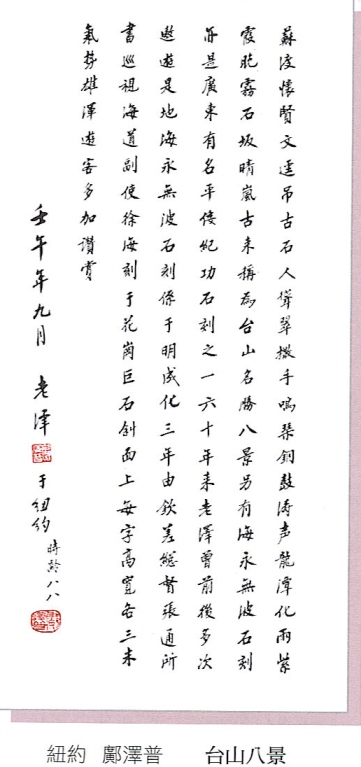 蘇渡懷賢文逵吊古石人聳翠撒手鳴琴銅鼓涛声龍潭化雨紫
霞晚霧石坂晴嵐古来稱為台山名勝八景另有海永無波石刻
亦是廣東有名平倭紀功石刻之一六十年来老澤曾前後多次
遨遊是地海永無波石刻係于明成化三年由欽差總督張通所
書巡視海道副使徐海刻于花崗巨石斜面上每字高寬各三米
氣勢雄渾遊客多加讚賞
壬午年九月 老澤 于紐約 時齡八八
紐約 鄺澤普 台山八景